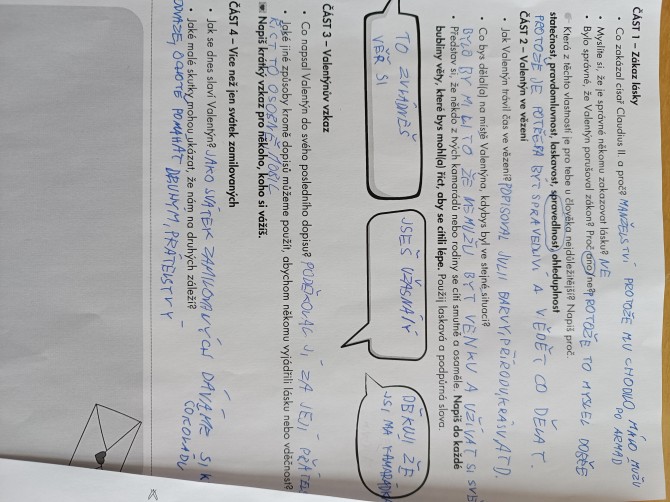 ČÁST 1 – Zákaz lásky
• Co zakázal císař Claudius II. a proč? MANŽELSTVÍ PROTOŽE MU CHODILO MÁLO MUŽŮ DO ARMÁD
• Myslíte si, že je správné někomu zakazovat lásku? NE
• Bylo správné, že Valentýn porušoval zákon? Proč ano/ne? PROTOŽE TO MYSLEL DOBŘE
Která z těchto vlastností je pro tebe u člověka nejdůležitější? Napiš proč.
statečnost, pravdomluvnost, laskavost, spravedlnost, ohleduplnost
PROTOŽE JE POTŘEBA BÝT SPRAVEDLIVÍ A VĚDĚT CO DĚLAT.
ČÁST 2 – Valentýn ve vězení
• Jak Valentýn trávil čas ve vězení? POPISOVAL JULII BARVY PŘÍRODU KRÁSY ATD.
• Co bys dělal(a) na místě Valentýna, kdybys byl ve stejné situaci?
BYLO BY MI LÍTO ŽE NEMŮŽU BÝT VENKU A UŽÍVAT SI SVĚ
• Představ si, že někdo z tvých kamarádů nebo rodiny se cítí smutně a osaměle. Napiš do každé
bubliny věty, které bys mohl(a) říct, aby se cítili lépe. Použij laskavá a podpůrná slova.
TO ZVLÁDNEŠ
VĚŘ SI
JSEŠ ÚŽASNÁ/Ý
DĚKUJI ŽE
JSI MÁ KAMARÁDKA
ČÁST 3 – Valentýnův vzkaz
• Co napsal Valentýn do svého posledního dopisu? PODĚKOVAL JÍ ZA JEJÍ PŘÁTEL
• Jaké jiné způsoby kromě dopisů můžeme použít, abychom někomu vyjádřili lásku nebo vděčnost?
ŘÍCT TO OSOBNĚ
Napiš krátký vzkaz pro někoho, koho si vážíš.
ČÁST 4 – Více než jen svátek zamilovaných
• Jak se dnes slaví Valentýn? JAKO SVÁTEK ZAMILOVANÝCH DÁVÁME SI K
ČOKOLÁDU
• Jaké malé skutky mohou ukázat, že nám na druhých záleží?
OCHOTĚ POMÁHAT DRUHÝM, PŘÁTELSTVÝ